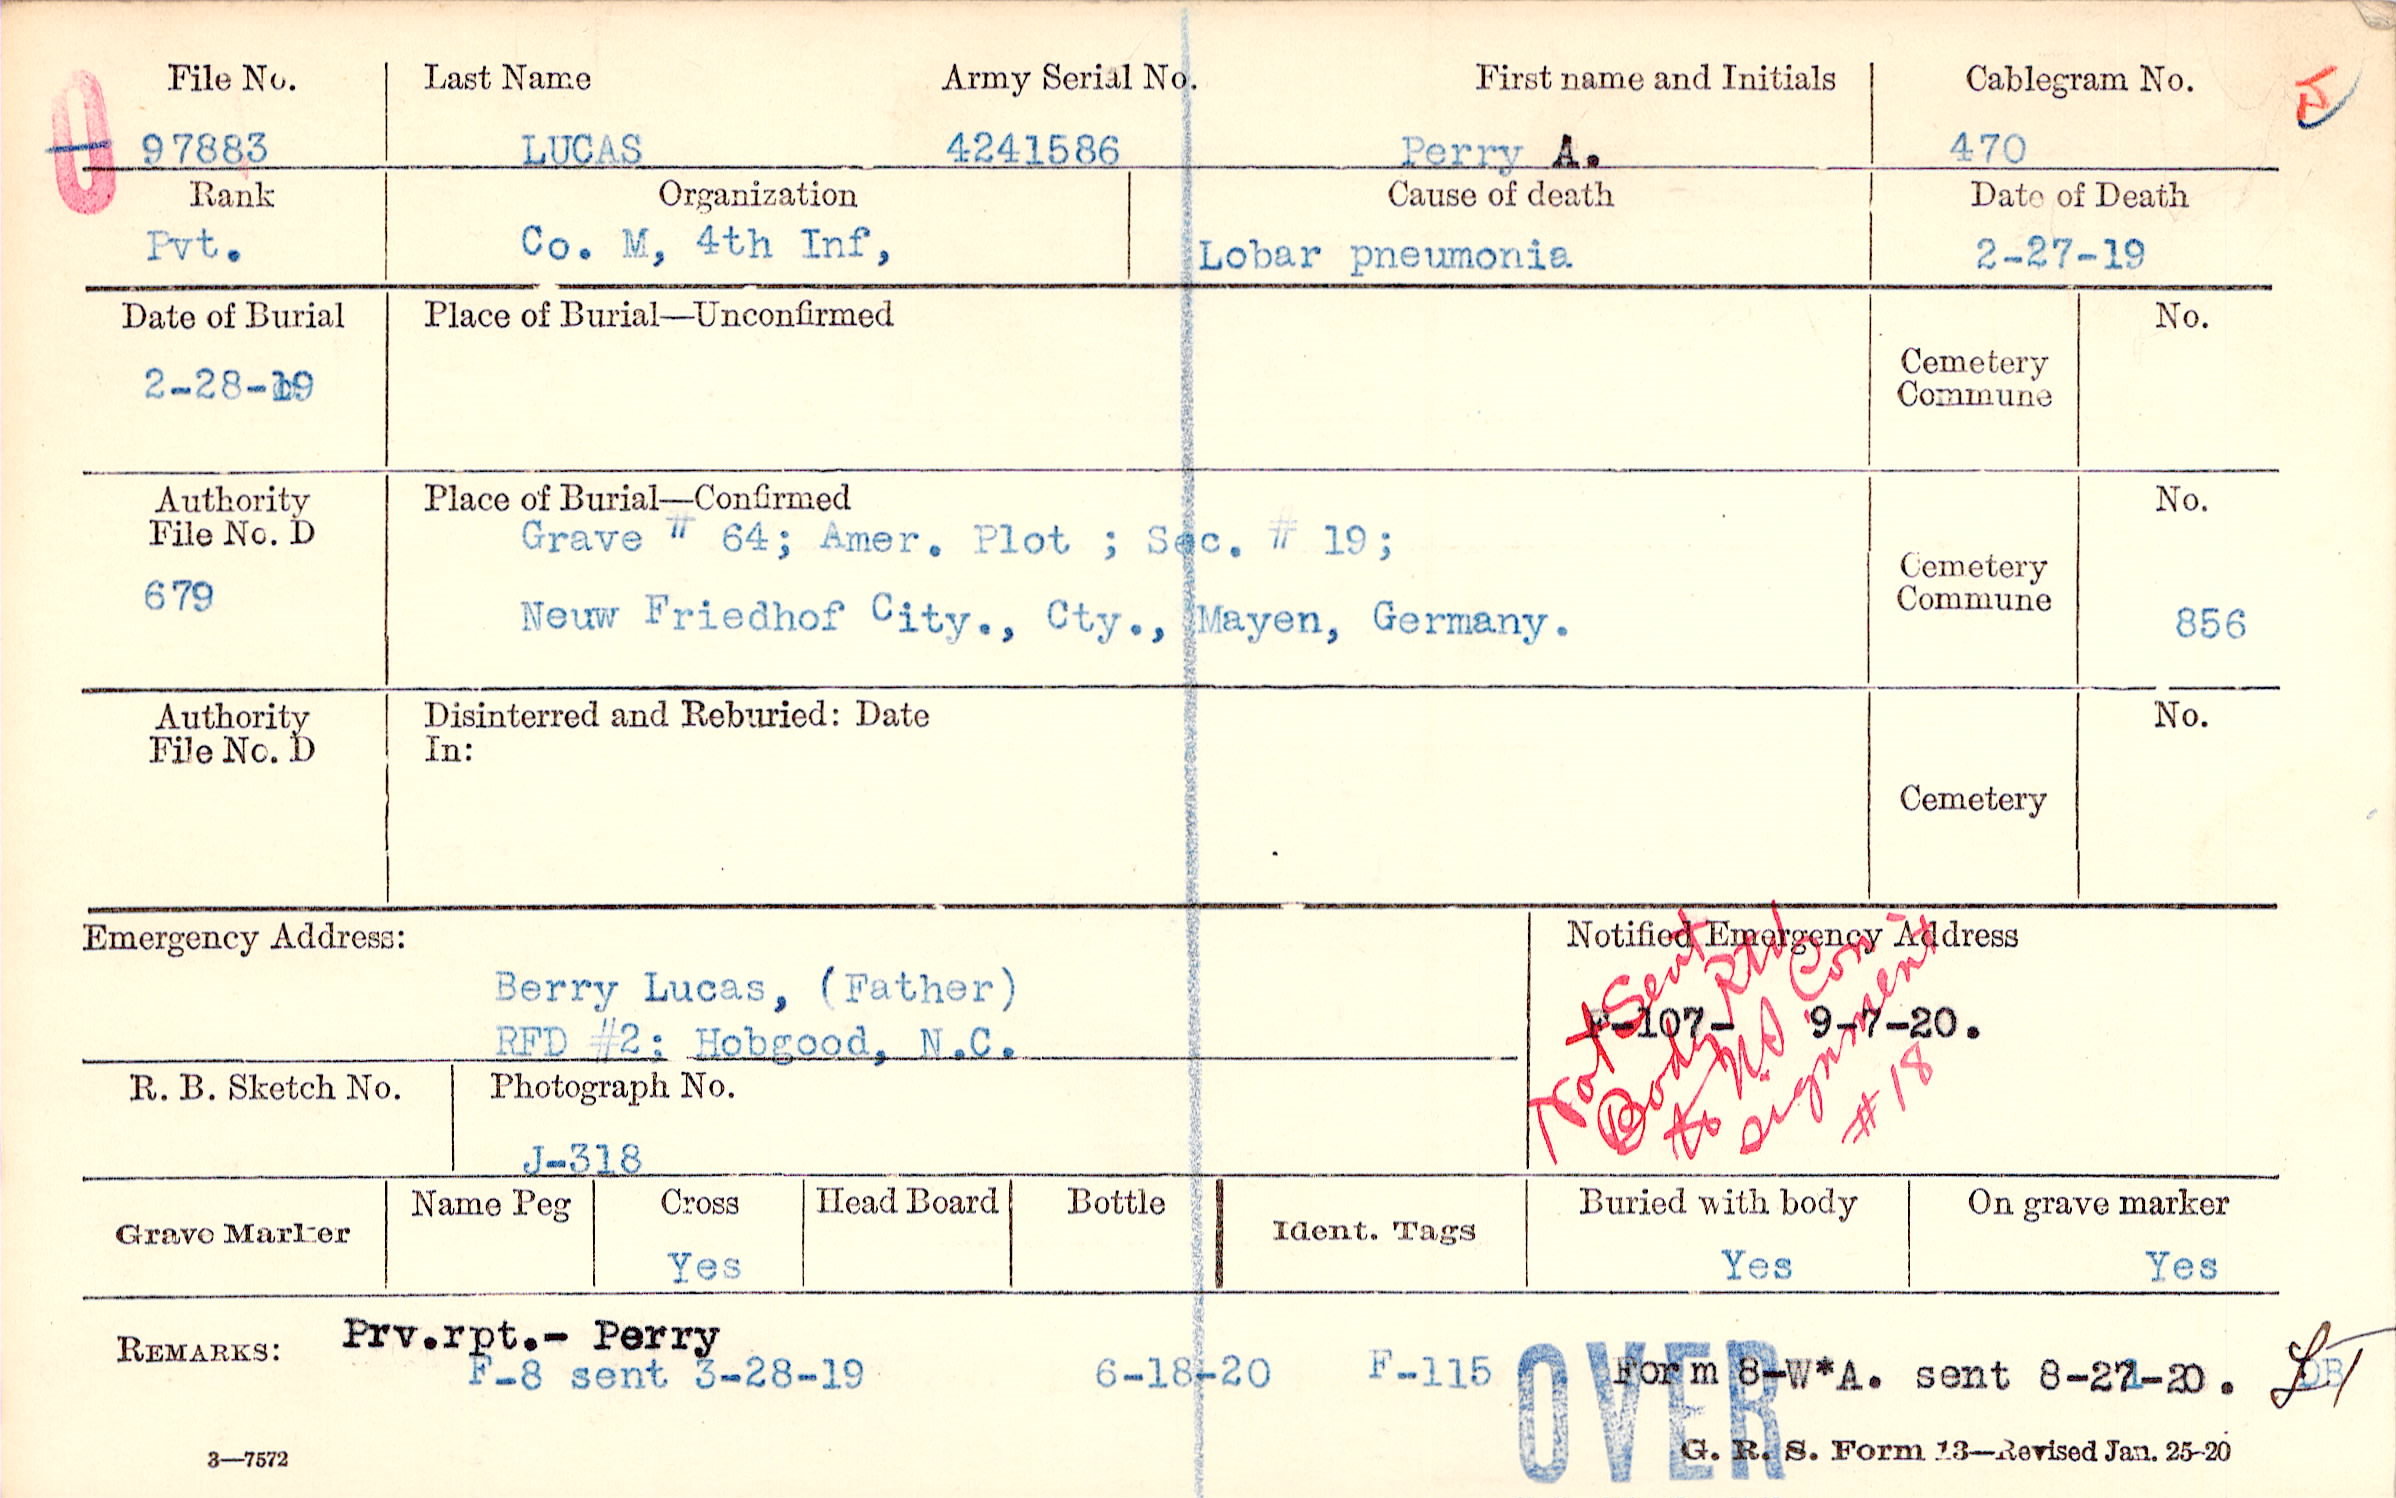 File No. Last Name Army Serial No. First name and Initials Cablegram No.
97883 LUCAS 4241586 Perry A. 470
Rank Organization Cause of death Date of Death
Pvt. Co. M, 4th Inf, Lobar pneumonia 2-27-19
Date of Burial Place of Burial—Unconfirmed No.
Cemetery
Commune
2-28-19
Authority Place of Burial—Confirmed No.
File No. D Grave # 64; Amer. Plot ; Sec. # 19;
Cemetery
Commune
679 Neuw Friedhof City., Cty., Mayen, Germany. 856
Authority Disinterred and Reburied: Date No.
File No. D In:
Cemetery
Emergency Address: Notified Emergency Address
Berry Lucas, (Father)
RFD #2: Hobgood, N.C.
F-107- 9-7-20.
Not Sent
Body Rtd
to U.S Con
signment
#18
R. B. Sketch No. Photograph No.
J-318
Grave Marker Name Peg Cross Head Board Bottle Ident. Tags Buried with body On grave marker
Yes Yes Yes
REMARKS: Prv.rpt.- Perry
F-8 sent 3-28-19 6-18-20 F-115 Form 8-W*A. sent 8-21-20.
OVER
3—7572 G. R. S. Form 13—Revised Jan. 25-20